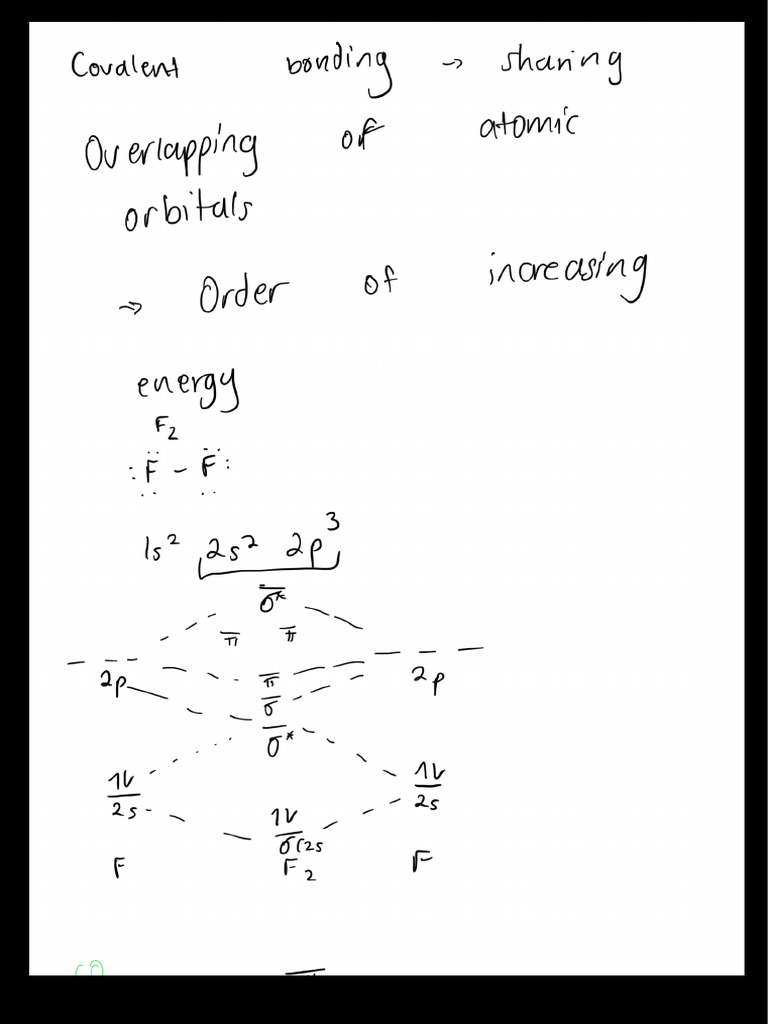 Covalent bonding → sharing
Overlapping of atomic
orbitals
⇒ Order of increasing
energy
F₂
:F̈ – F̈:
1s² 2s² 2p³
σ*
π π
2p π 2p
σ
σ*
1l 1l
2s 2s
1l
σ(2s
F F₂ F